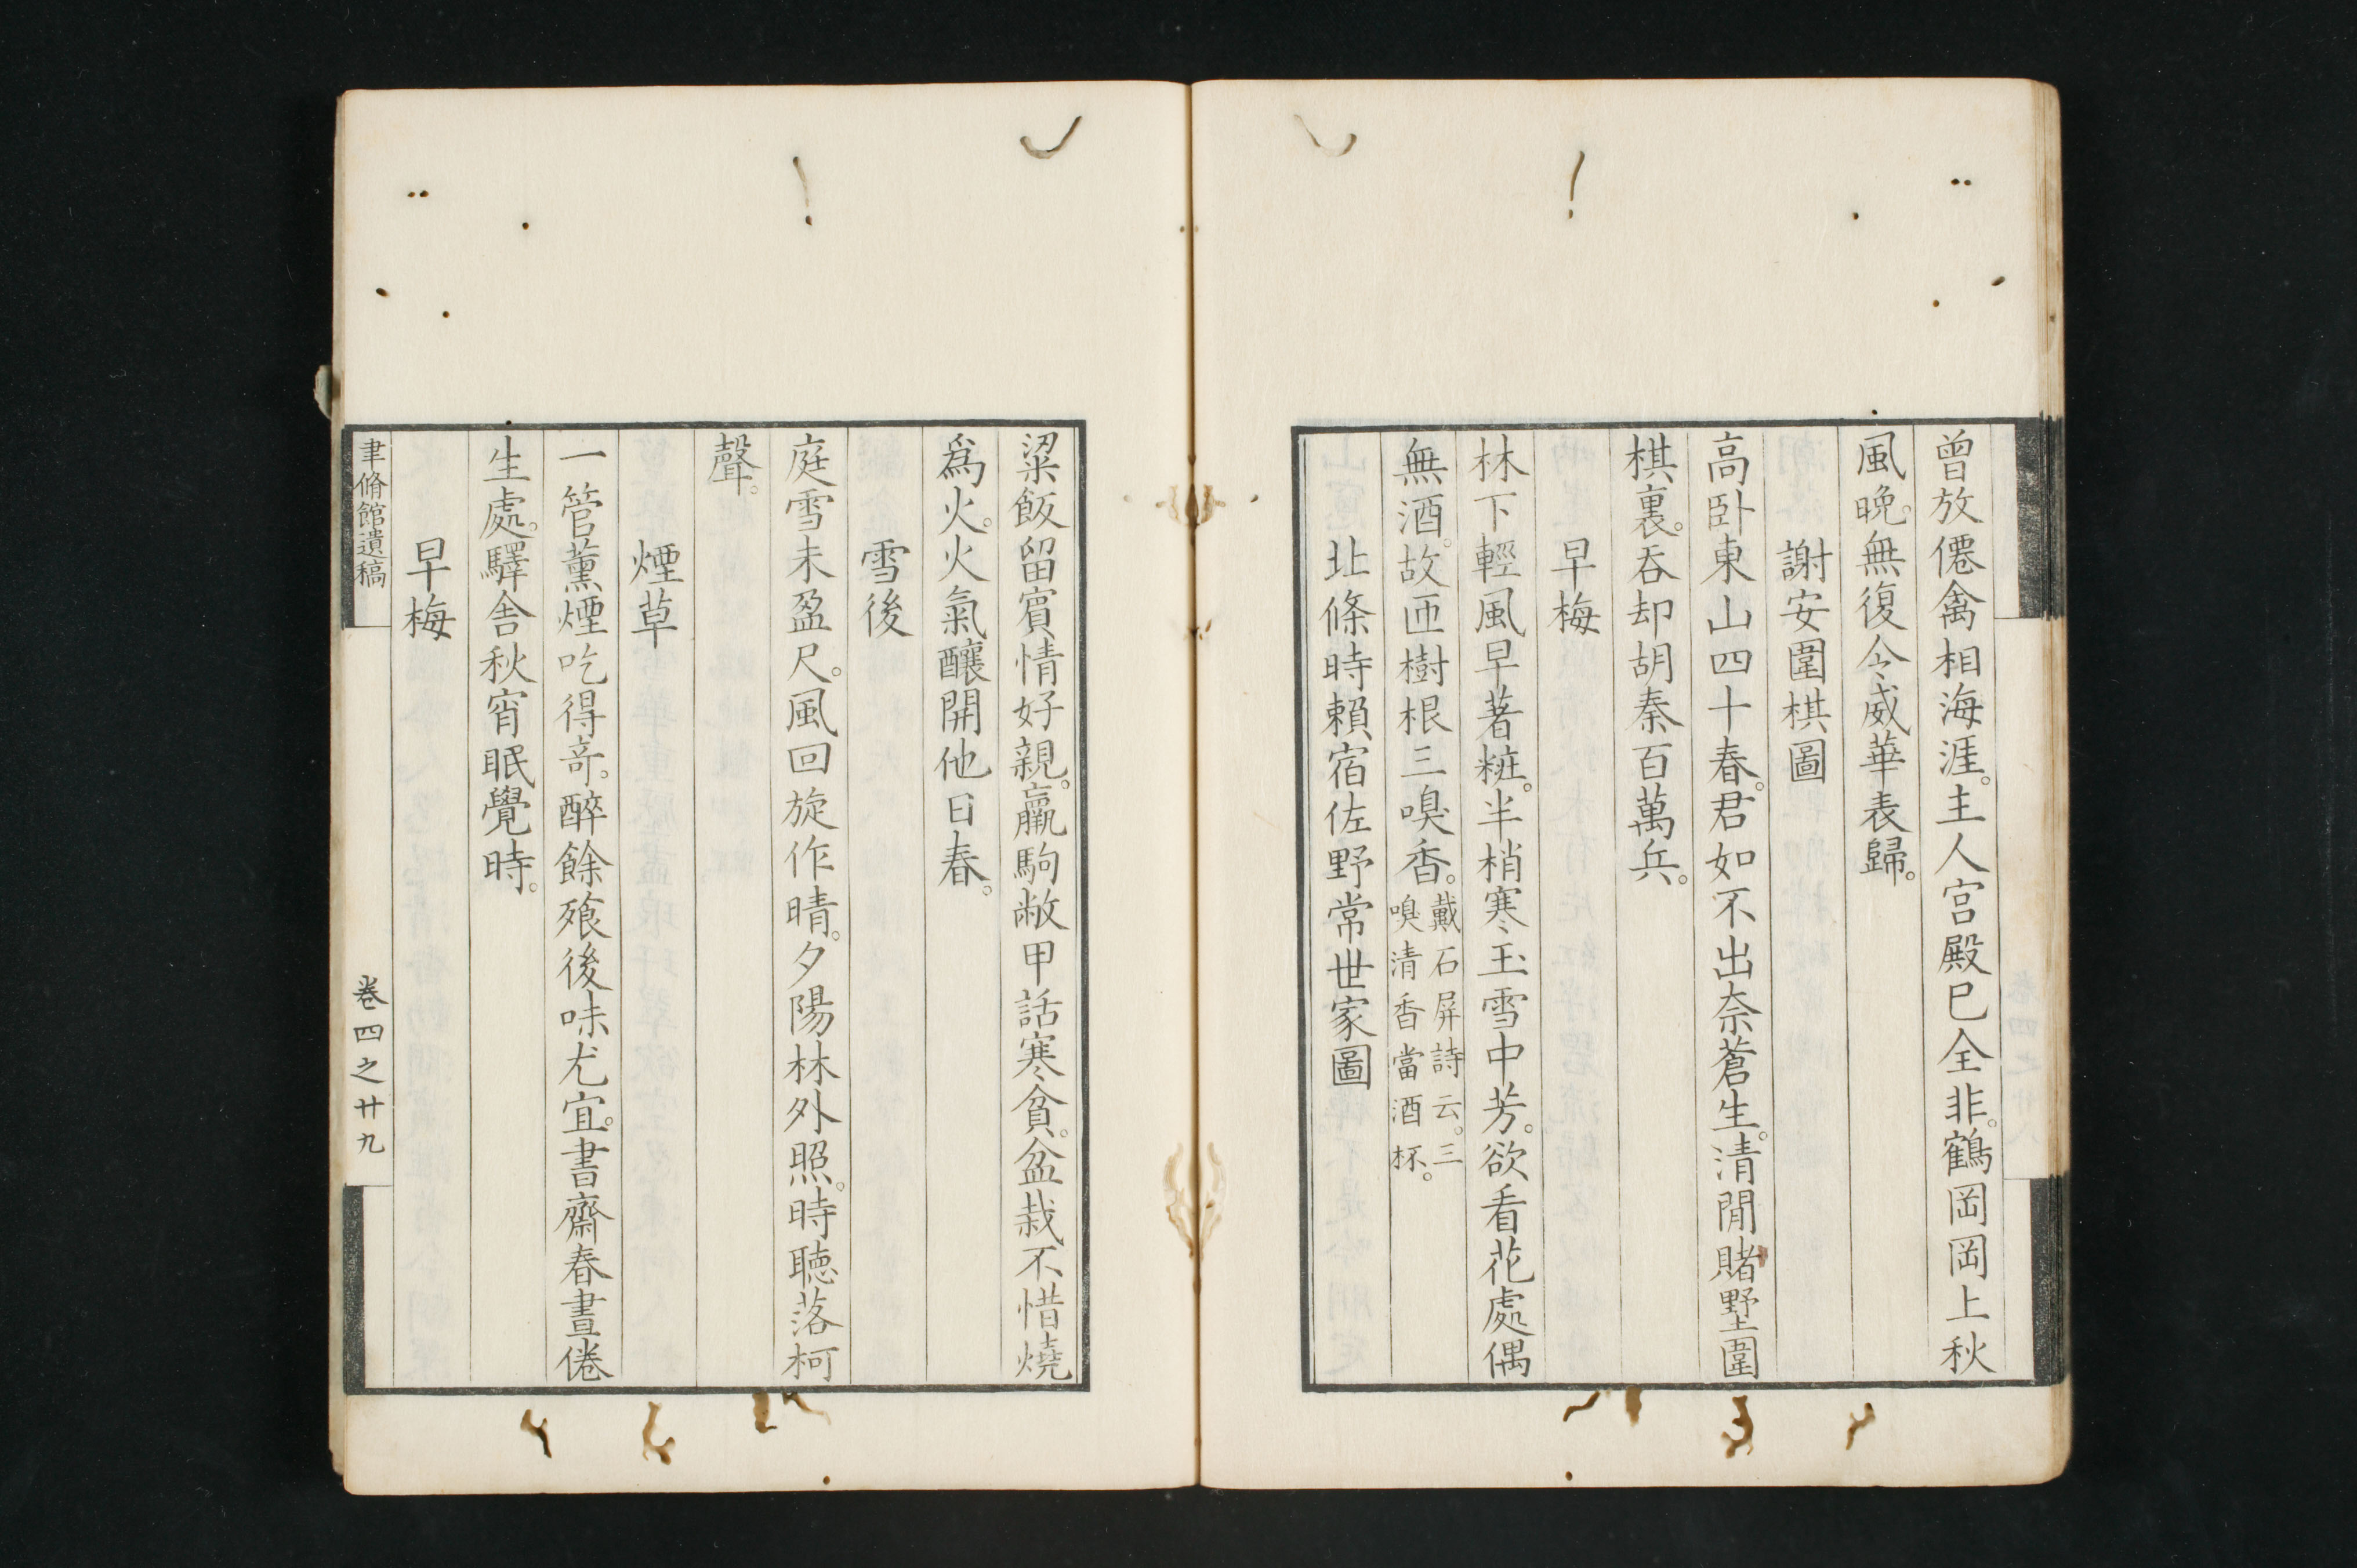 曾放僊禽相海涯。主人宮殿已全非。鶴岡岡上秋
風晩。無復令威華表歸。
謝安圍棋圖
高臥東山四十春。君如不出奈蒼生。清閒賭墅圍
棋裏。吞却胡秦百萬兵。
早梅
林下輕風早著粧。半梢寒玉雪中芳。欲看花處偶
無酒。故匝樹根三嗅香。戴石屏詩云。三
嗅清香當酒杯。
北條時賴宿佐野常世家圖
粱飯留賓情好親。羸駒敝甲話寒貧。盆栽不惜燒
爲火。火氣釀開他日春。
雪後
庭雪未盈尺。風回旋作晴。夕陽林外照。時聴落柯
聲。
煙草
一管薰煙吃得奇。醉餘飱後味尤宜。書齋春晝倦
生處。驛舎秋宵眠覺時。
早梅
聿脩館遺稿
卷四之廿九